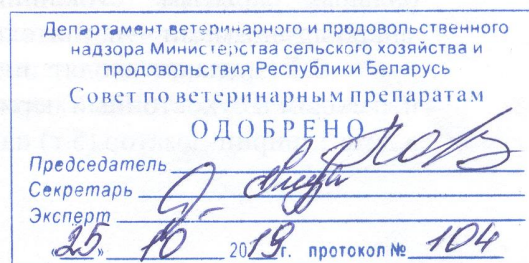 Департамент ветеринарного и продовольственного
надзора Министерства сельского хозяйства и
продовольствия Республики Беларусь
Совет по ветеринарным препаратам
ОДОБРЕНО
Председатель
Секретарь
Эксперт
«25» 10 2019г. протокол № 104